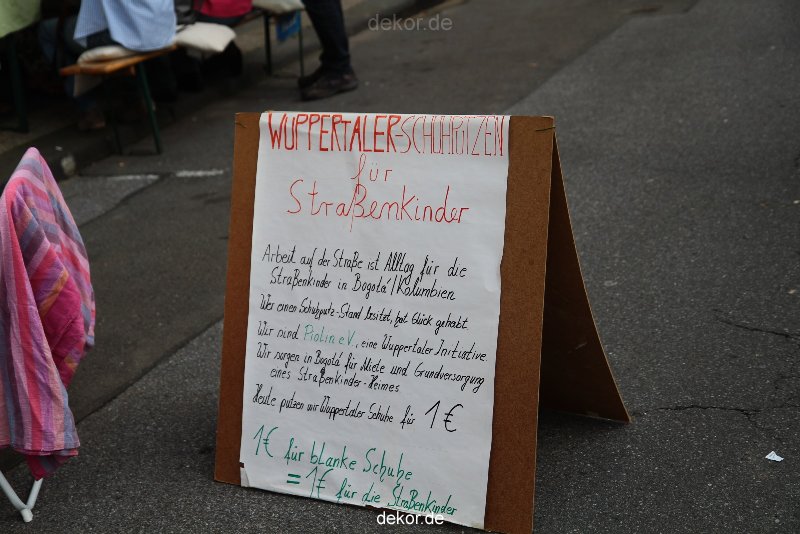 dekor.de
WUPPERTALER SCHUHPUTZEN
für
Straßenkinder
Arbeit auf der Straße ist Alltag für die
Straßenkinder in Bogotá/Kolumbien
Wer einen Schuhputz-Stand besitzt, hat Glück gehabt.
Wir sind Piolin e.V., eine Wuppertaler Initiative.
Wir sorgen in Bogotá für Miete und Grundversorgung
eines Straßenkinder-Heimes.
Heute putzen wir Wuppertaler Schuhe für 1€
1€ für blanke Schuhe
= 1€ für die Straßenkinder
dekor.de